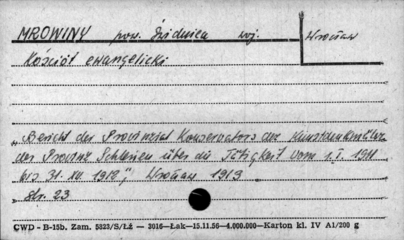 MROWINY pow. Świdnica woj. Wrocław
Kościół ewangelicki
„Bericht des Provinzial Konservators der Kunstdenkmäler
der Provinz Schlesien über die Tätigkeit vom 1.I. 1911
bis 31. XII. 1912", Wrocław 1913
Str. 23
CWD - B-15b. Zam. 5823/S/Łż — 3016—Łak—15.11.56—4.000.000—Karton kl. IV A1/200 g